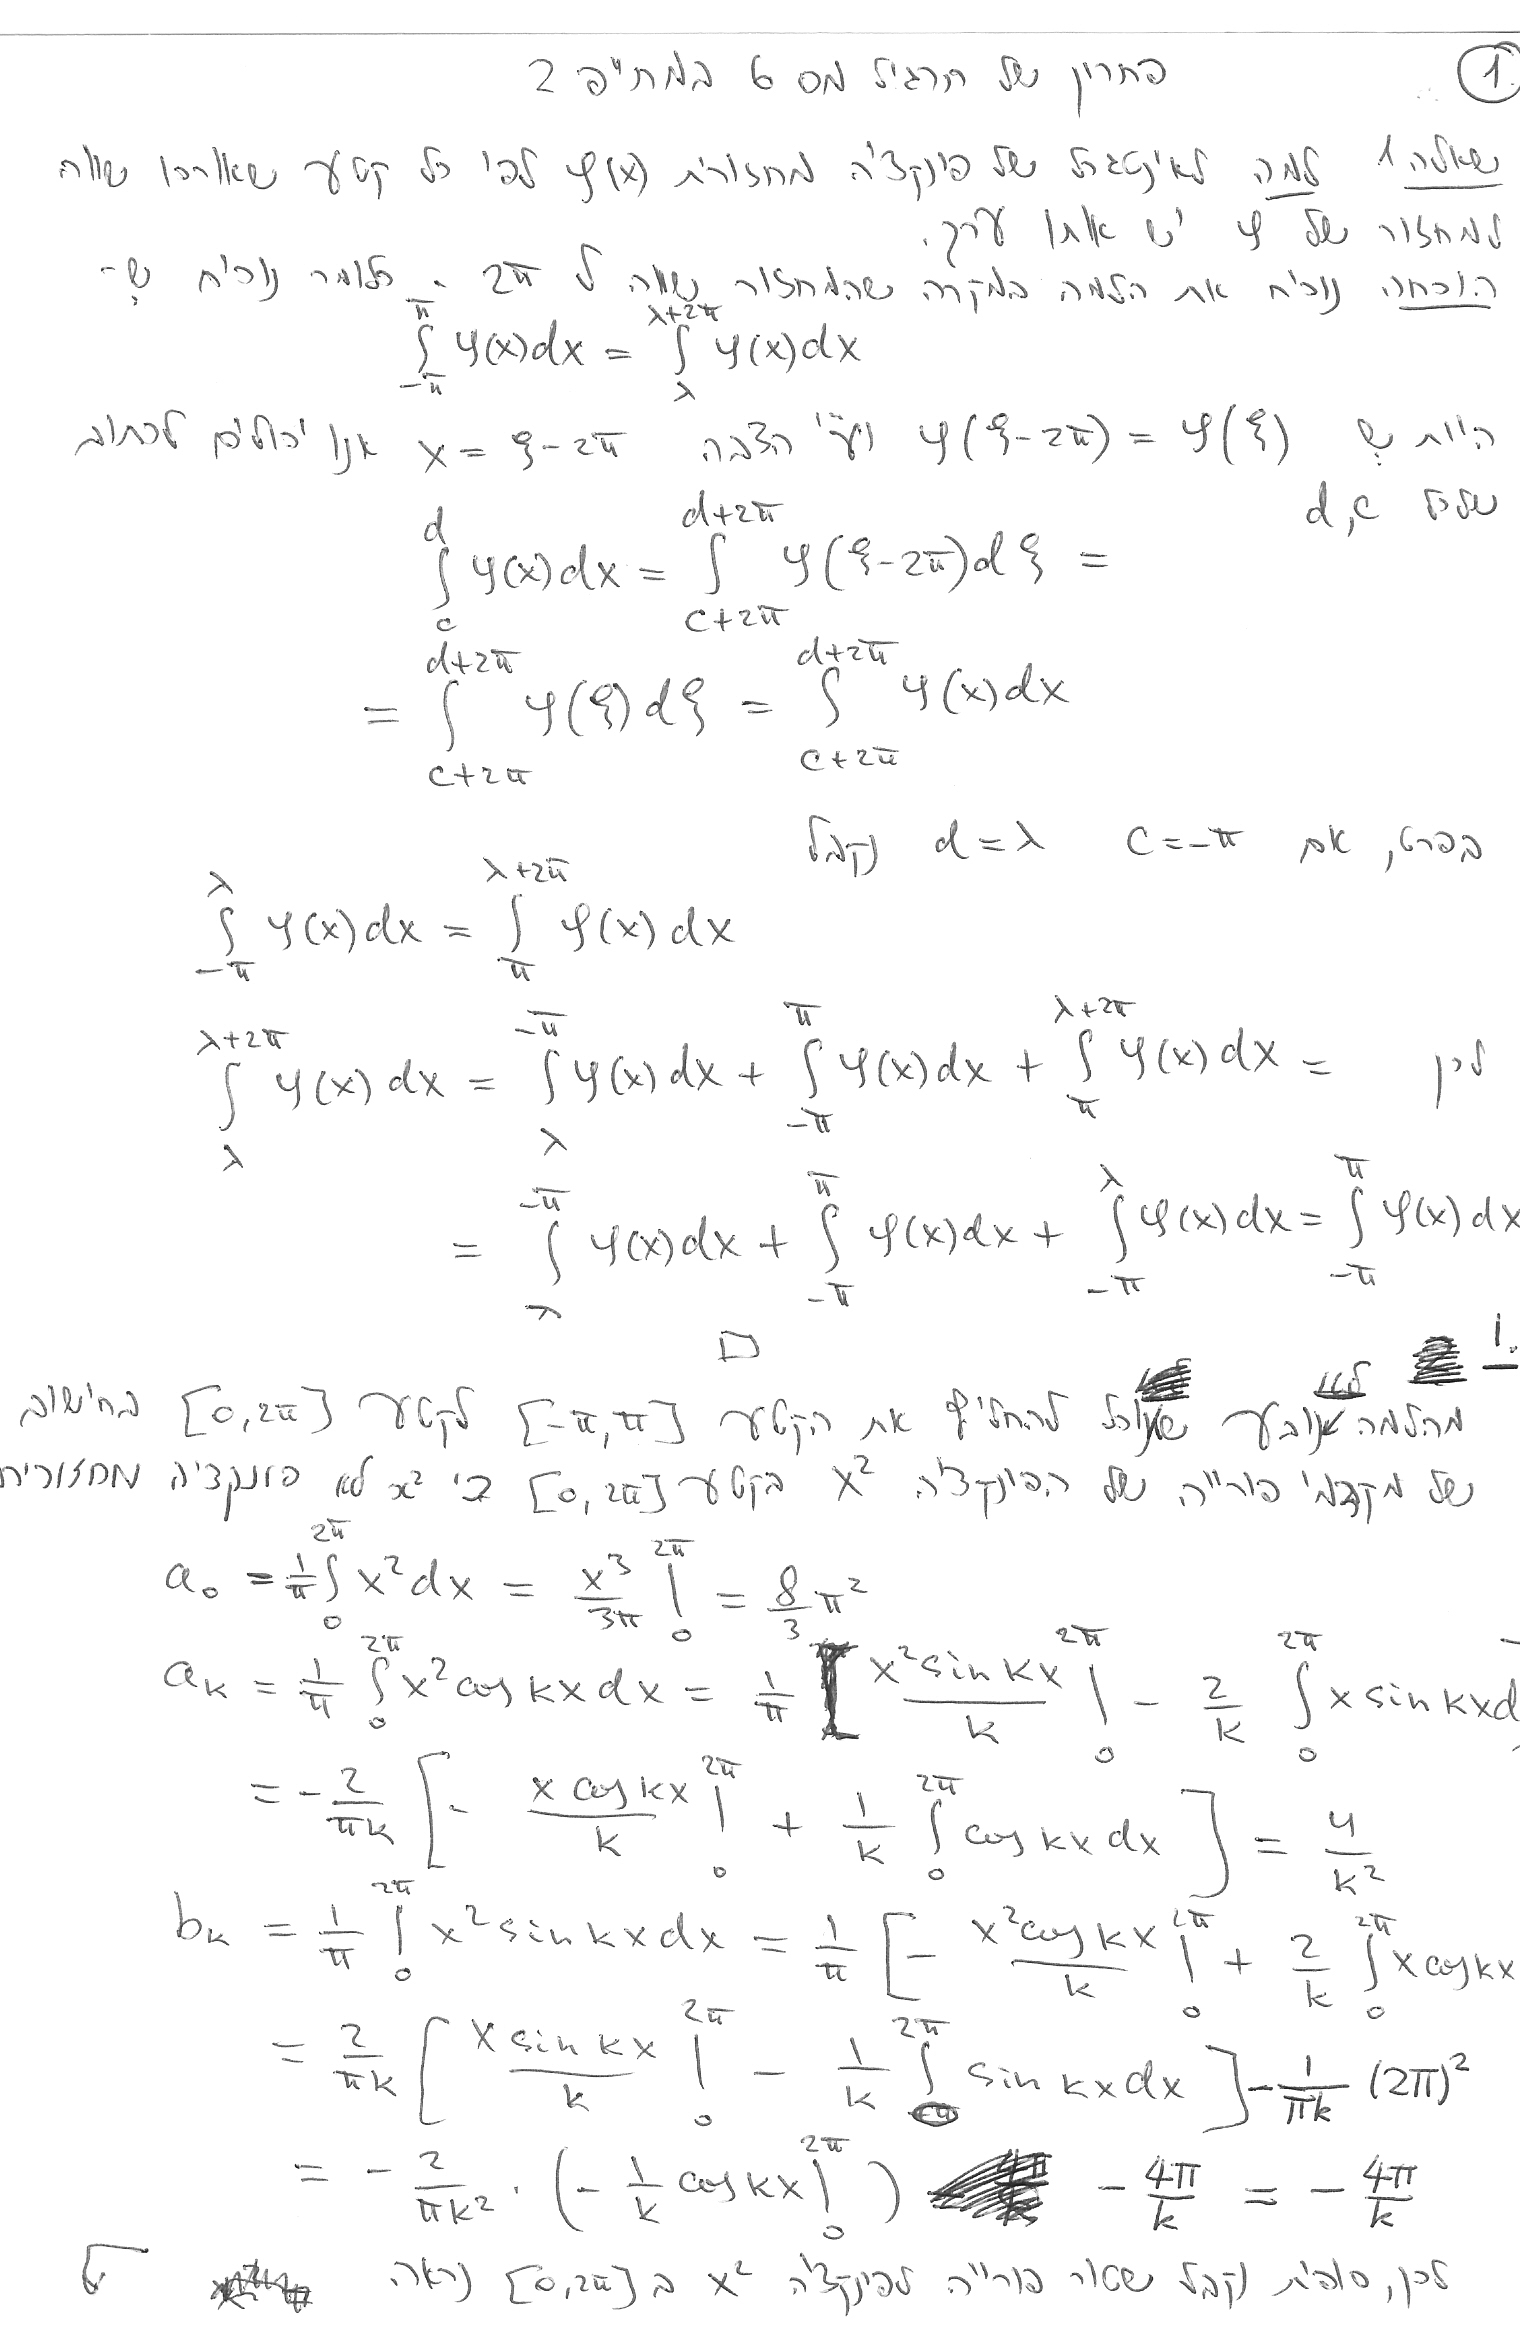 1.
פתרון של תרגיל מס 6 במת"פ 2
שאלה 1 למה לאינטגרל של פונקציה מחזורית φ(x) לפי כל קטע שאורכו שווה
למחזור של φ יש אותו ערך.
הוכחה נוכיח את הלמה במקרה שהמחזור שווה ל 2π. כלומר נוכיח ש-
∫_{-π}^{π} φ(x)dx = ∫_{λ}^{λ+2π} φ(x)dx
היות ש φ(ξ-2π) = φ(ξ) וע"י הצבה x = ξ-2π אנו יכולים לכתוב
שלכל d,c
∫_{c}^{d} φ(x)dx = ∫_{c+2π}^{d+2π} φ(ξ-2π)dξ =
= ∫_{c+2π}^{d+2π} φ(ξ)dξ = ∫_{c+2π}^{d+2π} φ(x)dx
בפרט, אם c=-π d=λ נקבל
∫_{-π}^{λ} φ(x)dx = ∫_{π}^{λ+2π} φ(x)dx
לכן ∫_{λ}^{λ+2π} φ(x)dx = ∫_{λ}^{-π} φ(x)dx + ∫_{-π}^{π} φ(x)dx + ∫_{π}^{λ+2π} φ(x)dx =
= ∫_{λ}^{-π} φ(x)dx + ∫_{-π}^{π} φ(x)dx + ∫_{-π}^{λ} φ(x)dx = ∫_{-π}^{π} φ(x)dx
□
i.
מהלמה לא נובע שנוכל להחליף את הקטע [-π,π] לקטע [0,2π] בחישוב
של מקדמי פורייה של הפונקציה x² בקטע [0,2π] כי x² לא פונקציה מחזורית
a₀ = 1/π ∫_{0}^{2π} x²dx = x³/3π |_{0}^{2π} = 8/3 π²
a_k = 1/π ∫_{0}^{2π} x² cos kx dx = 1/π [ x² sin kx / k |_{0}^{2π} - 2/k ∫_{0}^{2π} x sin kx d
= -2/πk [ - x cos kx / k |_{0}^{2π} + 1/k ∫_{0}^{2π} cos kx dx ] = 4/k²
b_k = 1/π ∫_{0}^{2π} x² sin kx dx = 1/π [ - x² cos kx / k |_{0}^{2π} + 2/k ∫_{0}^{2π} x cos kx
= 2/πk [ x sin kx / k |_{0}^{2π} - 1/k ∫^{2π} sin kx dx ] - 1/πk (2π)²
= - 2/πk² · (- 1/k cos kx |_{0}^{2π}) - 4π/k = - 4π/k
לכן, סופית נקבל שטור פורייה לפונקציה x² ב [0,2π] נראה